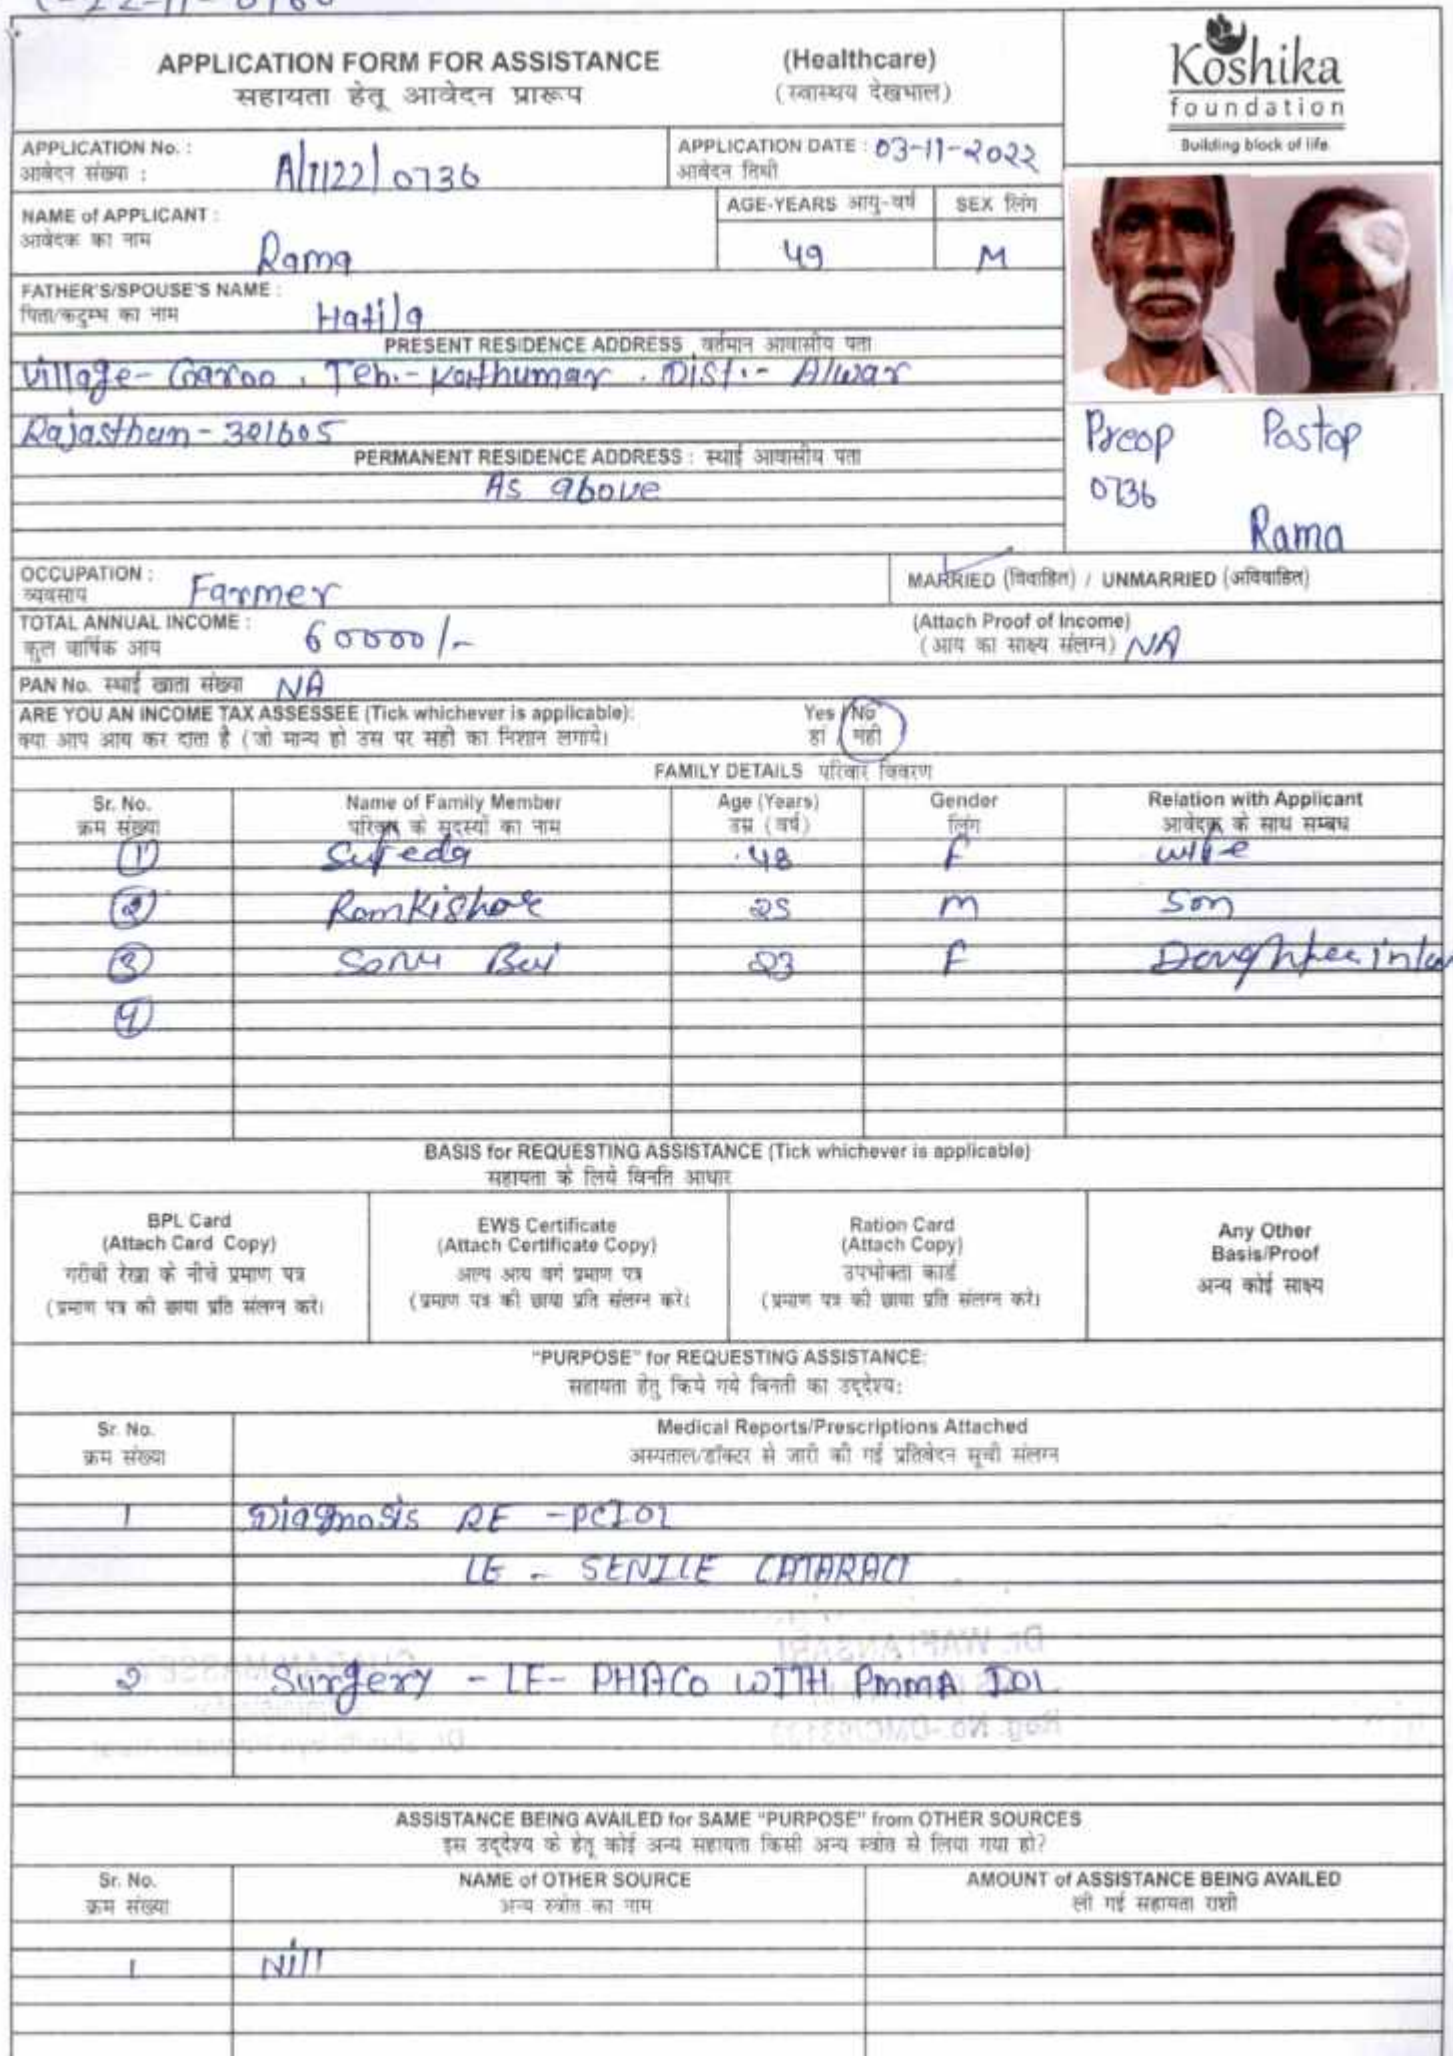 APPLICATION FORM FOR ASSISTANCE (Healthcare)
सहायता हेतू आवेदन प्रारूप (स्वास्थय देखभाल)
Koshika
foundation
Building block of life
APPLICATION No. :
आवेदन संख्या :
A/1122/0736
APPLICATION DATE : 03-11-2022
आवेदन तिथी
NAME of APPLICANT :
आवेदक का नाम
Rama
AGE-YEARS आयु-वर्ष
49
SEX लिंग
M
FATHER'S/SPOUSE'S NAME :
पिता/कटुम्ब का नाम
Hatila
PRESENT RESIDENCE ADDRESS वर्तमान आवासीय पता
Village- Garoo, Teh.- Kathumar. Dist.- Alwar
Rajasthan - 321605
PERMANENT RESIDENCE ADDRESS : स्थाई आवासीय पता
As above
Preop Postop
0736
Rama
OCCUPATION :
व्यवसाय
Farmer
MARRIED (विवाहित) / UNMARRIED (अविवाहित)
TOTAL ANNUAL INCOME :
कुल वार्षिक आय
60000/-
(Attach Proof of Income)
(आय का साक्ष्य संलग्न) NA
PAN No. स्थाई खाता संख्या NA
ARE YOU AN INCOME TAX ASSESSEE (Tick whichever is applicable): Yes / No
क्या आप आय कर दाता है (जो मान्य हो उस पर सही का निशान लगाये। हां / नही
FAMILY DETAILS परिवार विवरण
Sr. No. Name of Family Member Age (Years) Gender Relation with Applicant
क्रम संख्या परिवार के सदस्यों का नाम उम्र (वर्ष) लिंग आवेदक के साथ सम्बध
1 Sufeda 48 F wife
2 Ramkishor 25 M Son
3 Sonu Bai 23 F Doughter inlaw
4
BASIS for REQUESTING ASSISTANCE (Tick whichever is applicable)
सहायता के लिये विनति आधार
BPL Card
(Attach Card Copy)
गरीबी रेखा के नीचे प्रमाण पत्र
(प्रमाण पत्र की छाया प्रति संलग्न करें।
EWS Certificate
(Attach Certificate Copy)
अल्प आय वर्ग प्रमाण पत्र
(प्रमाण पत्र की छाया प्रति संलग्न करें।
Ration Card
(Attach Copy)
उपभोक्ता कार्ड
(प्रमाण पत्र की छाया प्रति संलग्न करें।
Any Other
Basis/Proof
अन्य कोई साक्ष्य
"PURPOSE" for REQUESTING ASSISTANCE:
सहायता हेतु किये गये विनती का उद्देश्य:
Sr. No. Medical Reports/Prescriptions Attached
क्रम संख्या अस्पताल/डॉक्टर से जारी की गई प्रतिवेदन सूची संलग्न
1 Diagnosis RE - PCIOL
LE - SENILE CATARACT
2 Surgery - LE - PHACO WITH PMMA IOL
ASSISTANCE BEING AVAILED for SAME "PURPOSE" from OTHER SOURCES
इस उद्देश्य के हेतू कोई अन्य सहायता किसी अन्य स्त्रोत से लिया गया हो?
Sr. No. NAME of OTHER SOURCE AMOUNT of ASSISTANCE BEING AVAILED
क्रम संख्या अन्य स्त्रोत का नाम ली गई सहायता राशी
1 Nill